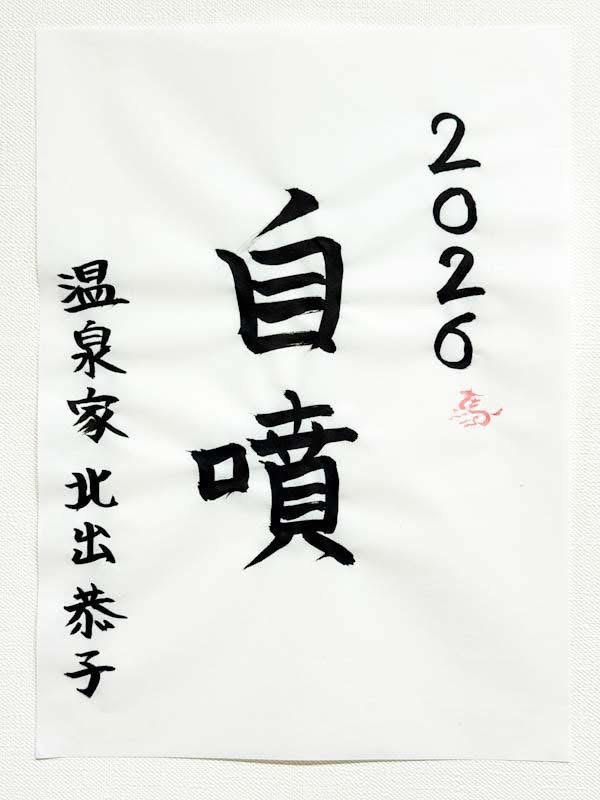 2026
馬
自噴
温泉家 北出恭子